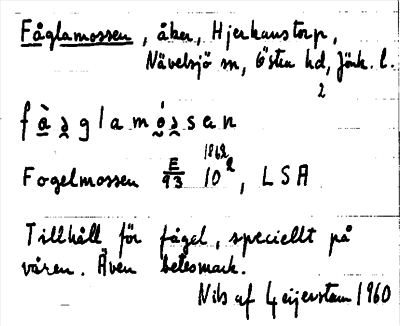 Fåglamossen, åker, Hjerkanstorp,
Nävelsjö sn, Östra hd, Jönk. l.
2
fàglamósen
1842
Fogelmossen E/93 10², LSA
Tillhåll för fågel, speciellt på
våren. Även betesmark.
Nils af Geijerstam 1960